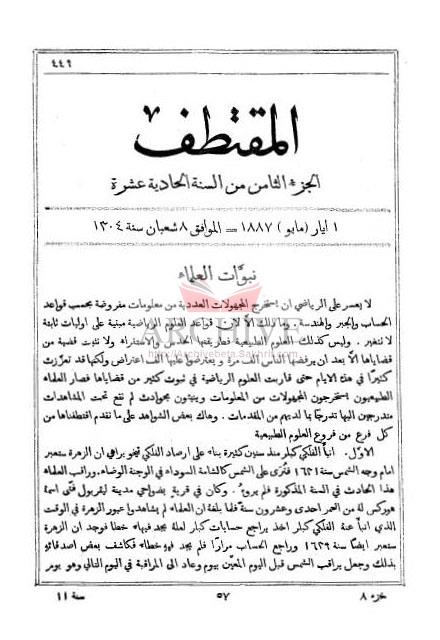 ٤٤٩
المقتطف
الجزء الثامن من السنة الحادية عشرة
١ ايار (مايو) ١٨٨٧ = الموافق ٨ شعبان سنة ١٣٠٤
نبوَّات العلماء
لا يعسر على الرياضي ان يستخرج المجهولات العددية من معلومات مفروضة بحسب قواعد
الحساب والجبر والهندسة. وما ذلك الَّا لان قواعد العلوم الرياضية مبنية على اوليات ثابتة
لا تتغير. وليس كذلك العلوم الطبيعية فطريقتها الحدس والاستقراء ولا تثبت قضية من
قضاياها الَّا بعد ان يرفضها الناس الف مرة و يعترضوا عليها الف اعتراض ولكنها قد تعزَّزت
كثيرًا في هذه الايام حتى قاربت العلوم الرياضية في ثبوت كثير من قضاياها فصار العلماء
الطبيعيون يستخرجون المجهولات من المعلومات وينبئون بحوادث لم تقع تحت المشاهدات
متدرجين اليها تدرجًا بما لديهم من المقدمات. وهاك بعض الشواهد على ما تقدم اقتطفناها من
كل فرع من فروع العلوم الطبيعية
الاوَّل. انبأ الفلكي كبلر منذ سنين كثيرة بناءً على ارصاد الفلكي تيخو براهي ان الزهرة ستعبر
امام وجه الشمس سنة ١٦٣١ فتُرَى على الشمس كالشامة السوداء في الوجنة الوضاءة. وراقب العلماء
هذا الحادث في السنة المذكورة فلم يروهُ. وكان في قرية بضواحي مدينة ليڤربول فتًى اسمهُ
هوركس لهُ من العمر احدى وعشرون سنة فلما بلغهُ ان العلماء لم يشاهدوا عبور الزهرة في الوقت
الذي انبأ عنهُ الفلكي كبلر اخذ يراجع حسابات كبلر لعلهُ يجد فيها خطأ فوجد ان الزهرة
ستعبر ايضًا سنة ١٦٣٩ وراجع الحساب مرارًا فلم يجد فيهِ خطأً فكاشف بعض اصدقائهِ
بذلك وجعل يراقب الشمس قبل اليوم المعيَّن بيوم وعاد الى المراقبة في اليوم التالي وهو يوم
جزء ٨ ٥٧ سنة ١١
ARCHIVE